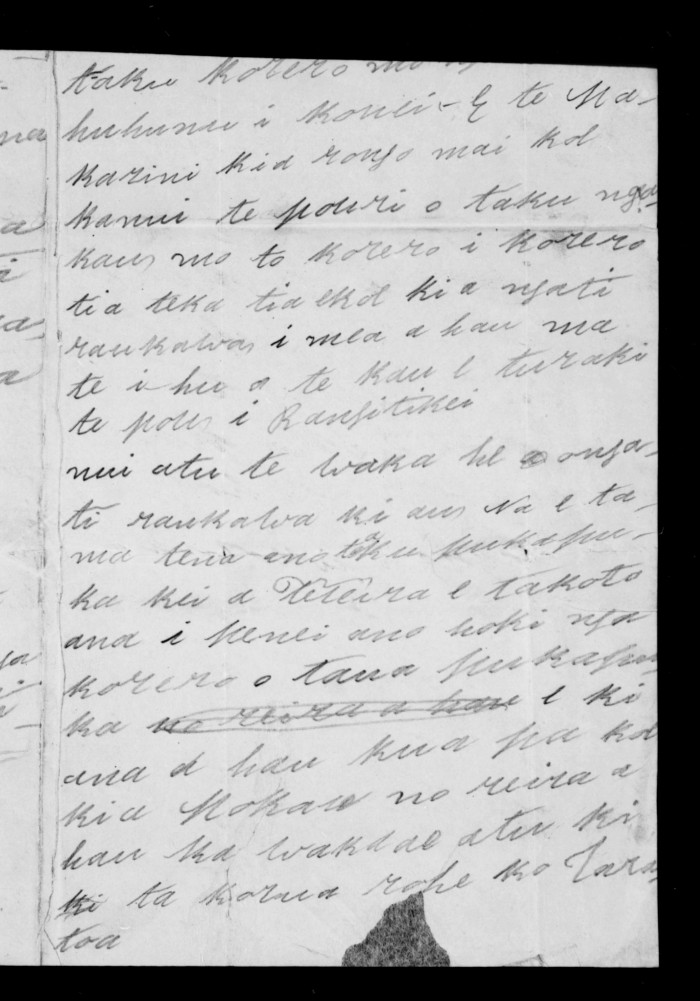 taku korero mo
huhunu i konei - E te Ma-
karini kia rongo mai koe
kanui te pouri o taku nga-
kau mo to korero i korero
tia teka tia e koe ki a ngati
raukawa i mea a hau ma
te ihu o te kau e turaki
te pou i Rangitikei
nui atu te waka he a onga-
ti raukawa ki au Na e ta-
ma tena ano toku pukapu-
ka kei a Teteira e takoto
ana i penei ano hoki nga
korero o taua pukapu
ka no reira a hau e ki
ana a hau kua pa koe
kia Pokae no reira a
hau ka wakaae atu ki
ki ta korua rohe ko Tara
toa